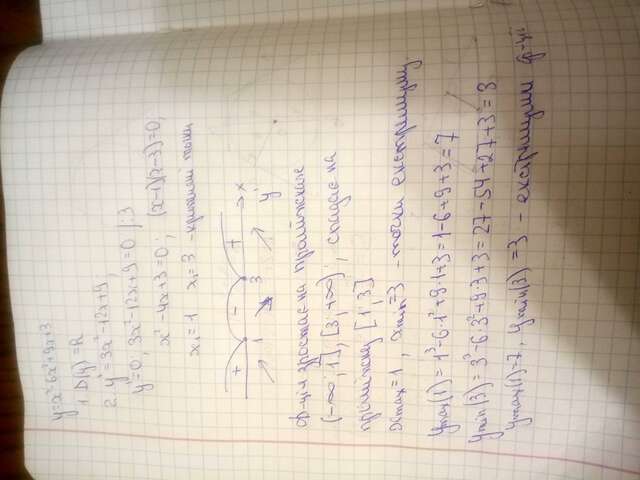 y=x³-6x²+9x+3
1. D(y) = R
2. y' = 3x²-12x+9,
y'=0, 3x²-12x+9=0 |:3
x²-4x+3=0; (x-1)(x-3)=0,
x₁=1 x₂=3 - критичні точки
+ - + → x
1 3 y'
ф-ція зростає на проміжках
(-∞; 1], [3; +∞) ; спадає на
проміжку [1; 3]
xmax=1, xmin=3 - точки екстремуму.
ymax(1)=1³-6·1²+9·1+3=1-6+9+3=7
ymin(3)=3³-6·3²+9·3+3=27-54+27+3=3
ymax(1)=7, ymin(3)=3 - екстремуми ф-ції